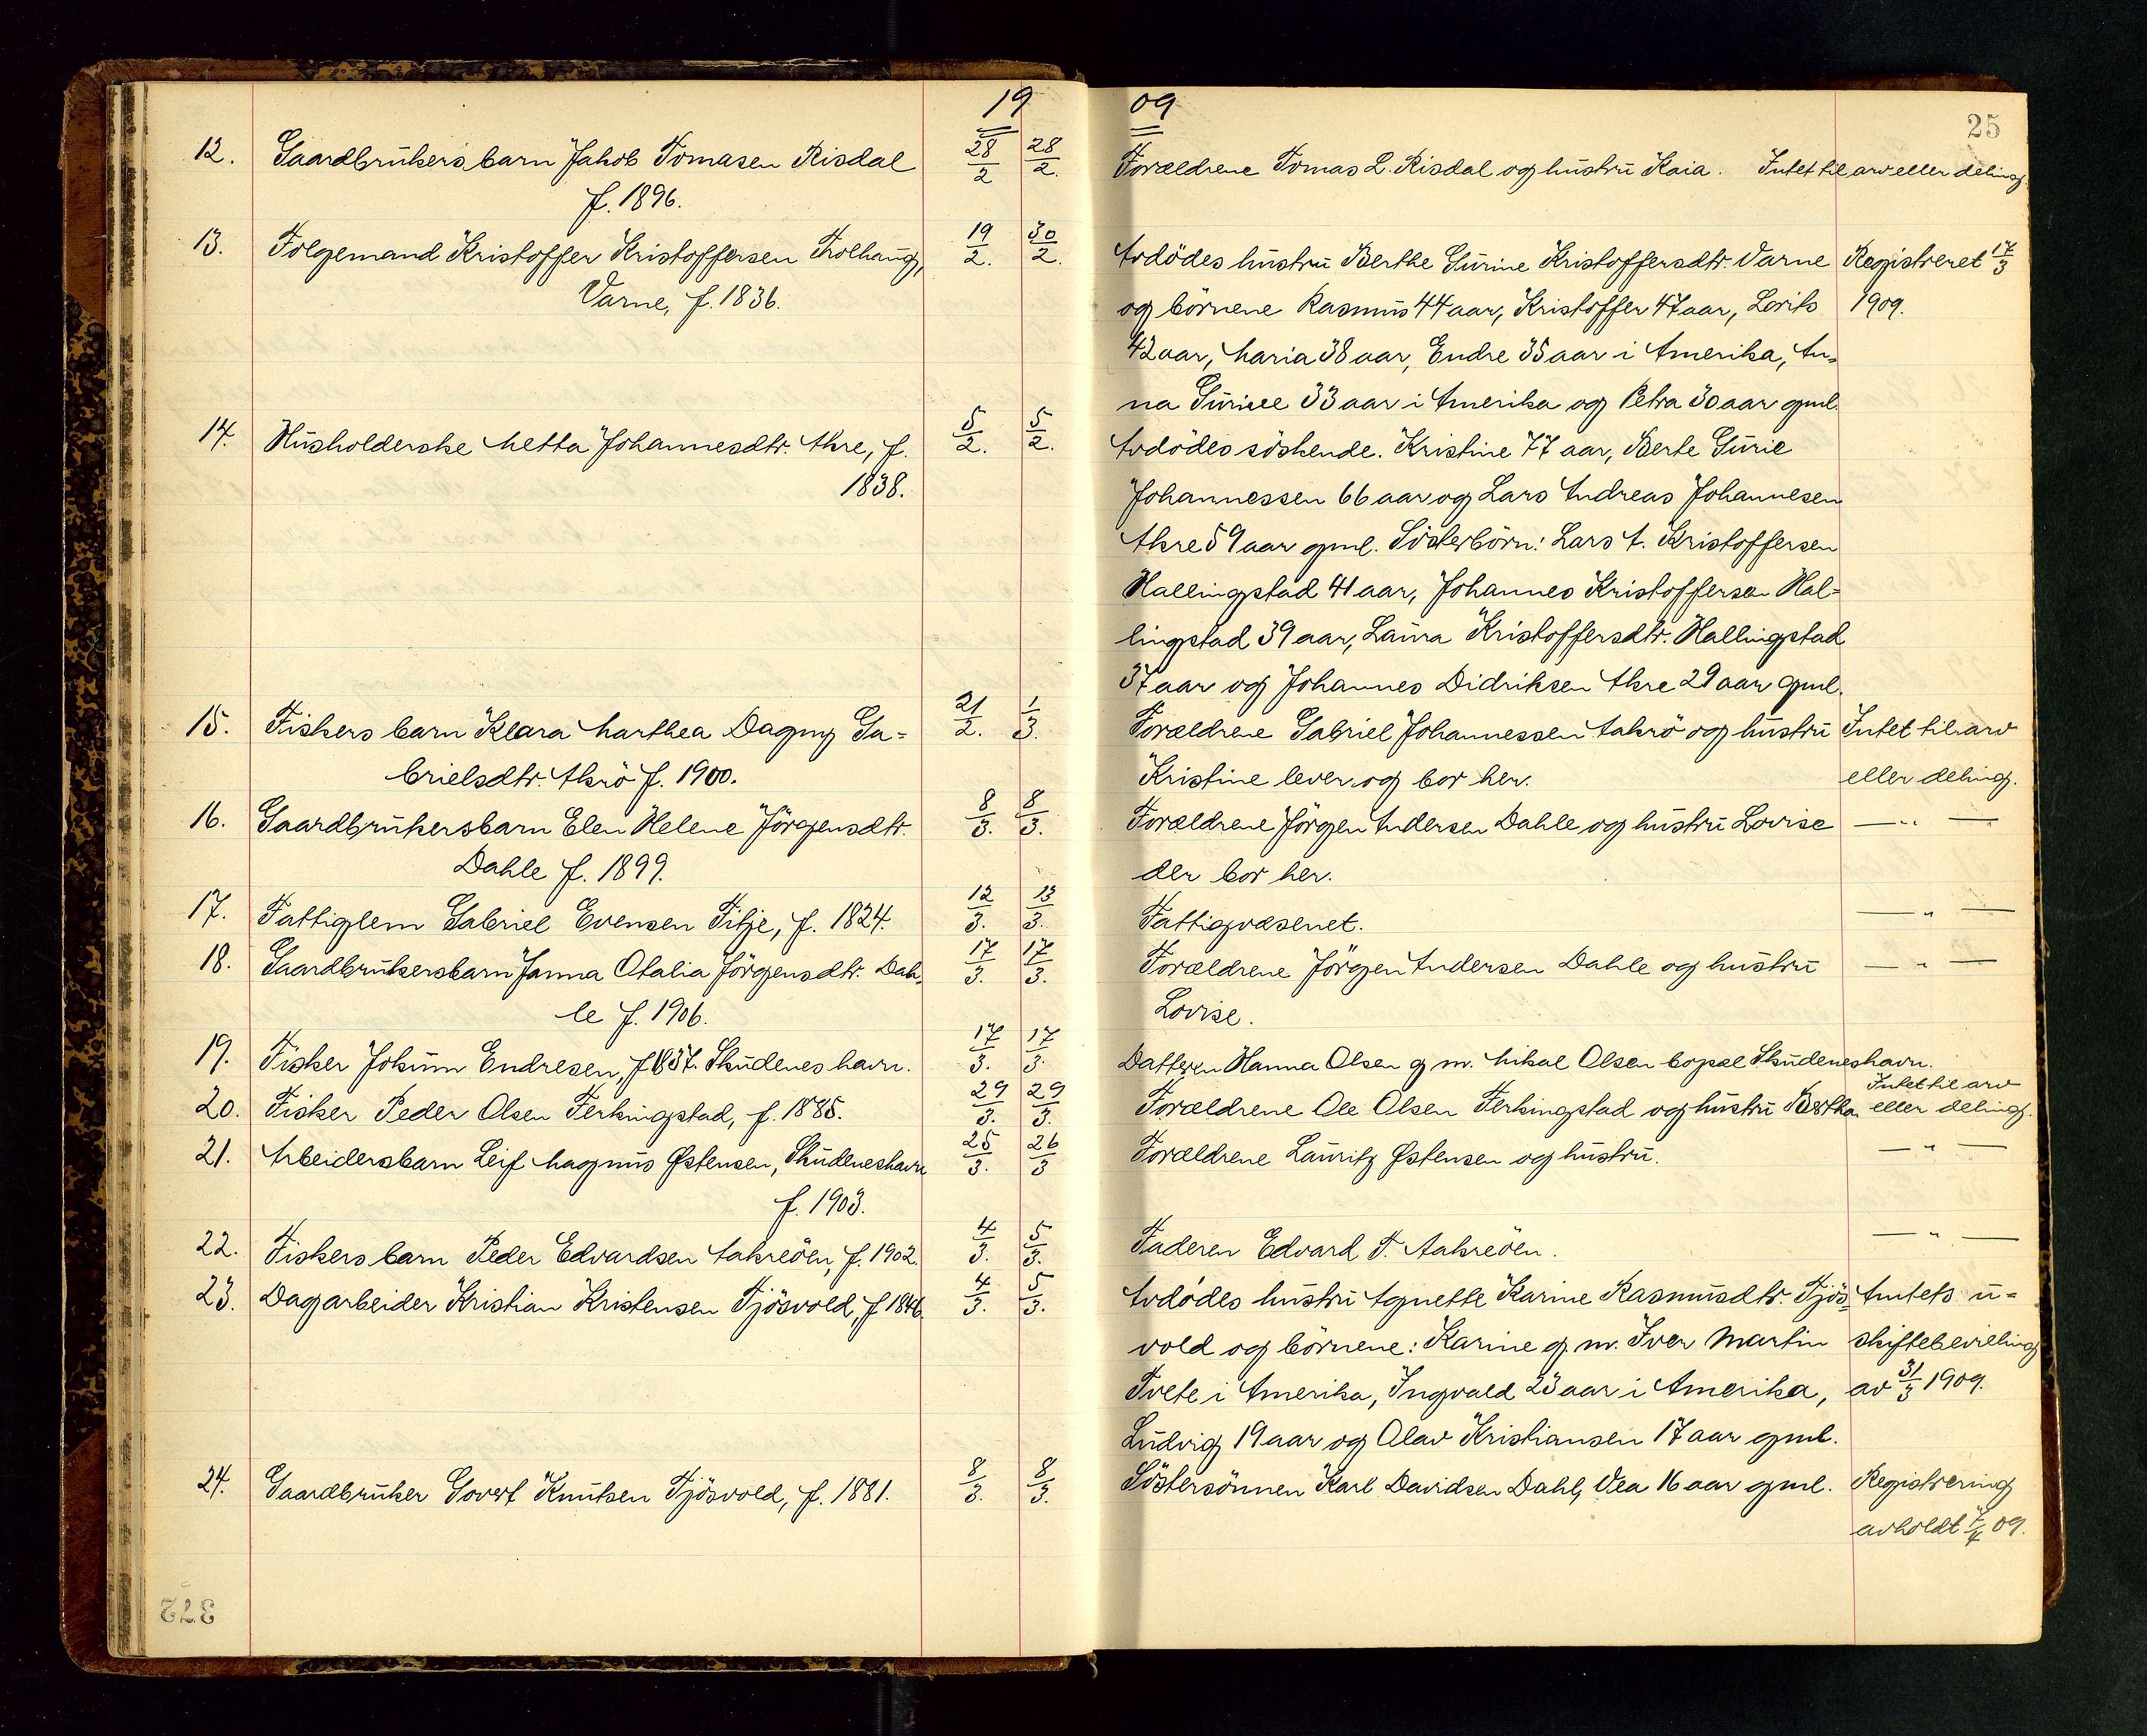 19 09
25
12. Gaardbrukers barn Jakob Tomasen Risdal 28/2 28/2. Forældrene Tomas L. Risdal og hustru Kaia. Intet til arv eller deling.
f. 1896.
13. Folgemand Kristoffer Kristoffersen Trolhaug, 19/2. 30/2. Avdödes hustru Berthe Surine Kristoffersdtr. Varne Registreret 17/3
Varne, f. 1836. og börnene Rasmus 44 aar, Kristoffer 47 aar, Lorits 1909.
42 aar, Maria 38 aar, Endre 35 aar i Amerika, An-
na Surine 33 aar i Amerika og Petra 30 aar gml.
14. Husholderske Metta Johannesdtr. Akre, f. 5/2. 5/2. Avdödes söskende. Kristine 77 aar, Berte Gurie
1838. Johannessen 66 aar og Lars Andreas Johannesen
Akre 59 aar gml. Sösterbörn: Lars A. Kristoffersen
Hallingstad 41 aar, Johannes Kristoffersen Hal-
lingstad 39 aar, Laura Kristoffersdtr. Hallingstad
37 aar og Johannes Didriksen Akre 29 aar gml.
15. Fiskers barn Klara Marthea Dagny Ga- 21/2. 1/3. Forældrene Gabriel Johannessen Aakrö og hustru Intet til arv
brielsdtr. Akrö f. 1900. Kristine lever og bor her. eller deling.
16. Gaardbrukersbarn Elen Helene Jörgensdtr. 8/3. 8/3. Forældrene Jörgen Andersen Dahle og hustru Lovise — " —
Dahle f. 1899. der bor her.
17. Fattiglem Gabriel Evensen Fitje, f. 1824. 12/3. 13/3. Fattigvæsenet. — " —
18. Gaardbrukersbarn Janna Otalia Jörgensdtr. Dah- 17/3. 17/3. Forældrene Jörgen Andersen Dahle og hustru — " —
le f. 1906. Lovise.
19. Fisker Jokum Endresen, f. 1837. Skudeneshavn. 17/3. 17/3. Datteren Hanna Olsen g. m. Mikal Olsen bopæl Skudeneshavn.
20. Fisker Peder Olsen Ferkingstad, f. 1885. 29/3. 29/3. Forældrene Ole Olsen Ferkingstad og hustru Bertha Intet til arv eller deling.
21. Arbeidersbarn Leif Magnus Østensen, Skudeneshavn 25/3. 26/3 Forældrene Lauritz Østensen og hustru. — " —
f. 1903.
22. Fiskers barn Peder Edvardsen Aakreöen, f. 1902. 4/3. 5/3. Faderen Edvard T. Aakreöen. — " —
23. Dagarbeider Kristian Kristensen Tjösvold, f. 1846. 4/3. 5/3. Avdödes hustru Agnette Karine Rasmusdtr. Tjös- Amtets u-
vold og börnene: Karine g. m. Iver Martin skiftebevilling
Tvete i Amerika, Ingvald 23 aar i Amerika, av 31/3 1909.
Ludvig 19 aar og Olav Kristiansen 17 aar gml.
24. Gaardbruker Govert Knutsen Tjösvold, f. 1881. 8/3. 8/3. Söstersönnen Karl Davidsen Dahl, Vea 16 aar gml. Registrering
avholdt 7/4 09.
372